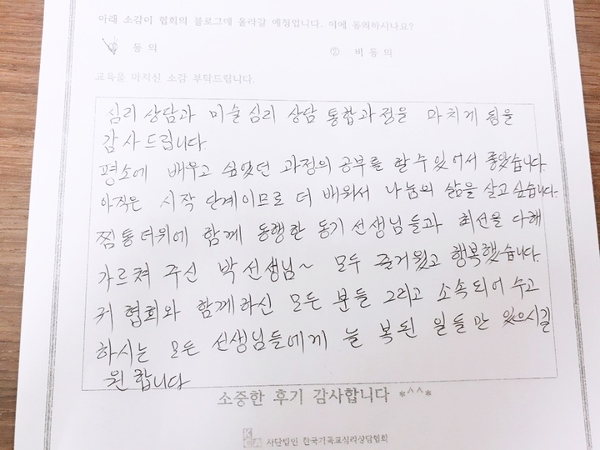 아래 소감이 협회의 블로그에 올려질 예정입니다. 이에 동의하시나요?
동 의 ② 비 동 의
교육을 마치신 소감 부탁드립니다.
심리 상담과 미술 심리 상담 통합과정을 마치게 됨을
감사 드립니다.
평소에 배우고 싶었던 과정의 공부를 할 수 있어서 좋았습니다.
아직은 시작 단계이므로 더 배워서 나눔의 삶을 살고 싶습니다.
찜통더위에 함께 동행한 동기 선생님들과 최선을 다해
가르쳐 주신 박선생님~ 모두 즐거웠고 행복했습니다.
귀 협회와 함께하신 모든 분들 그리고 소속되어 수고
하시는 모든 선생님들에게 늘 복된 일들만 있으시길
원합니다
소중한 후기 감사합니다 *^^*
사단법인 한국기독교심리상담협회